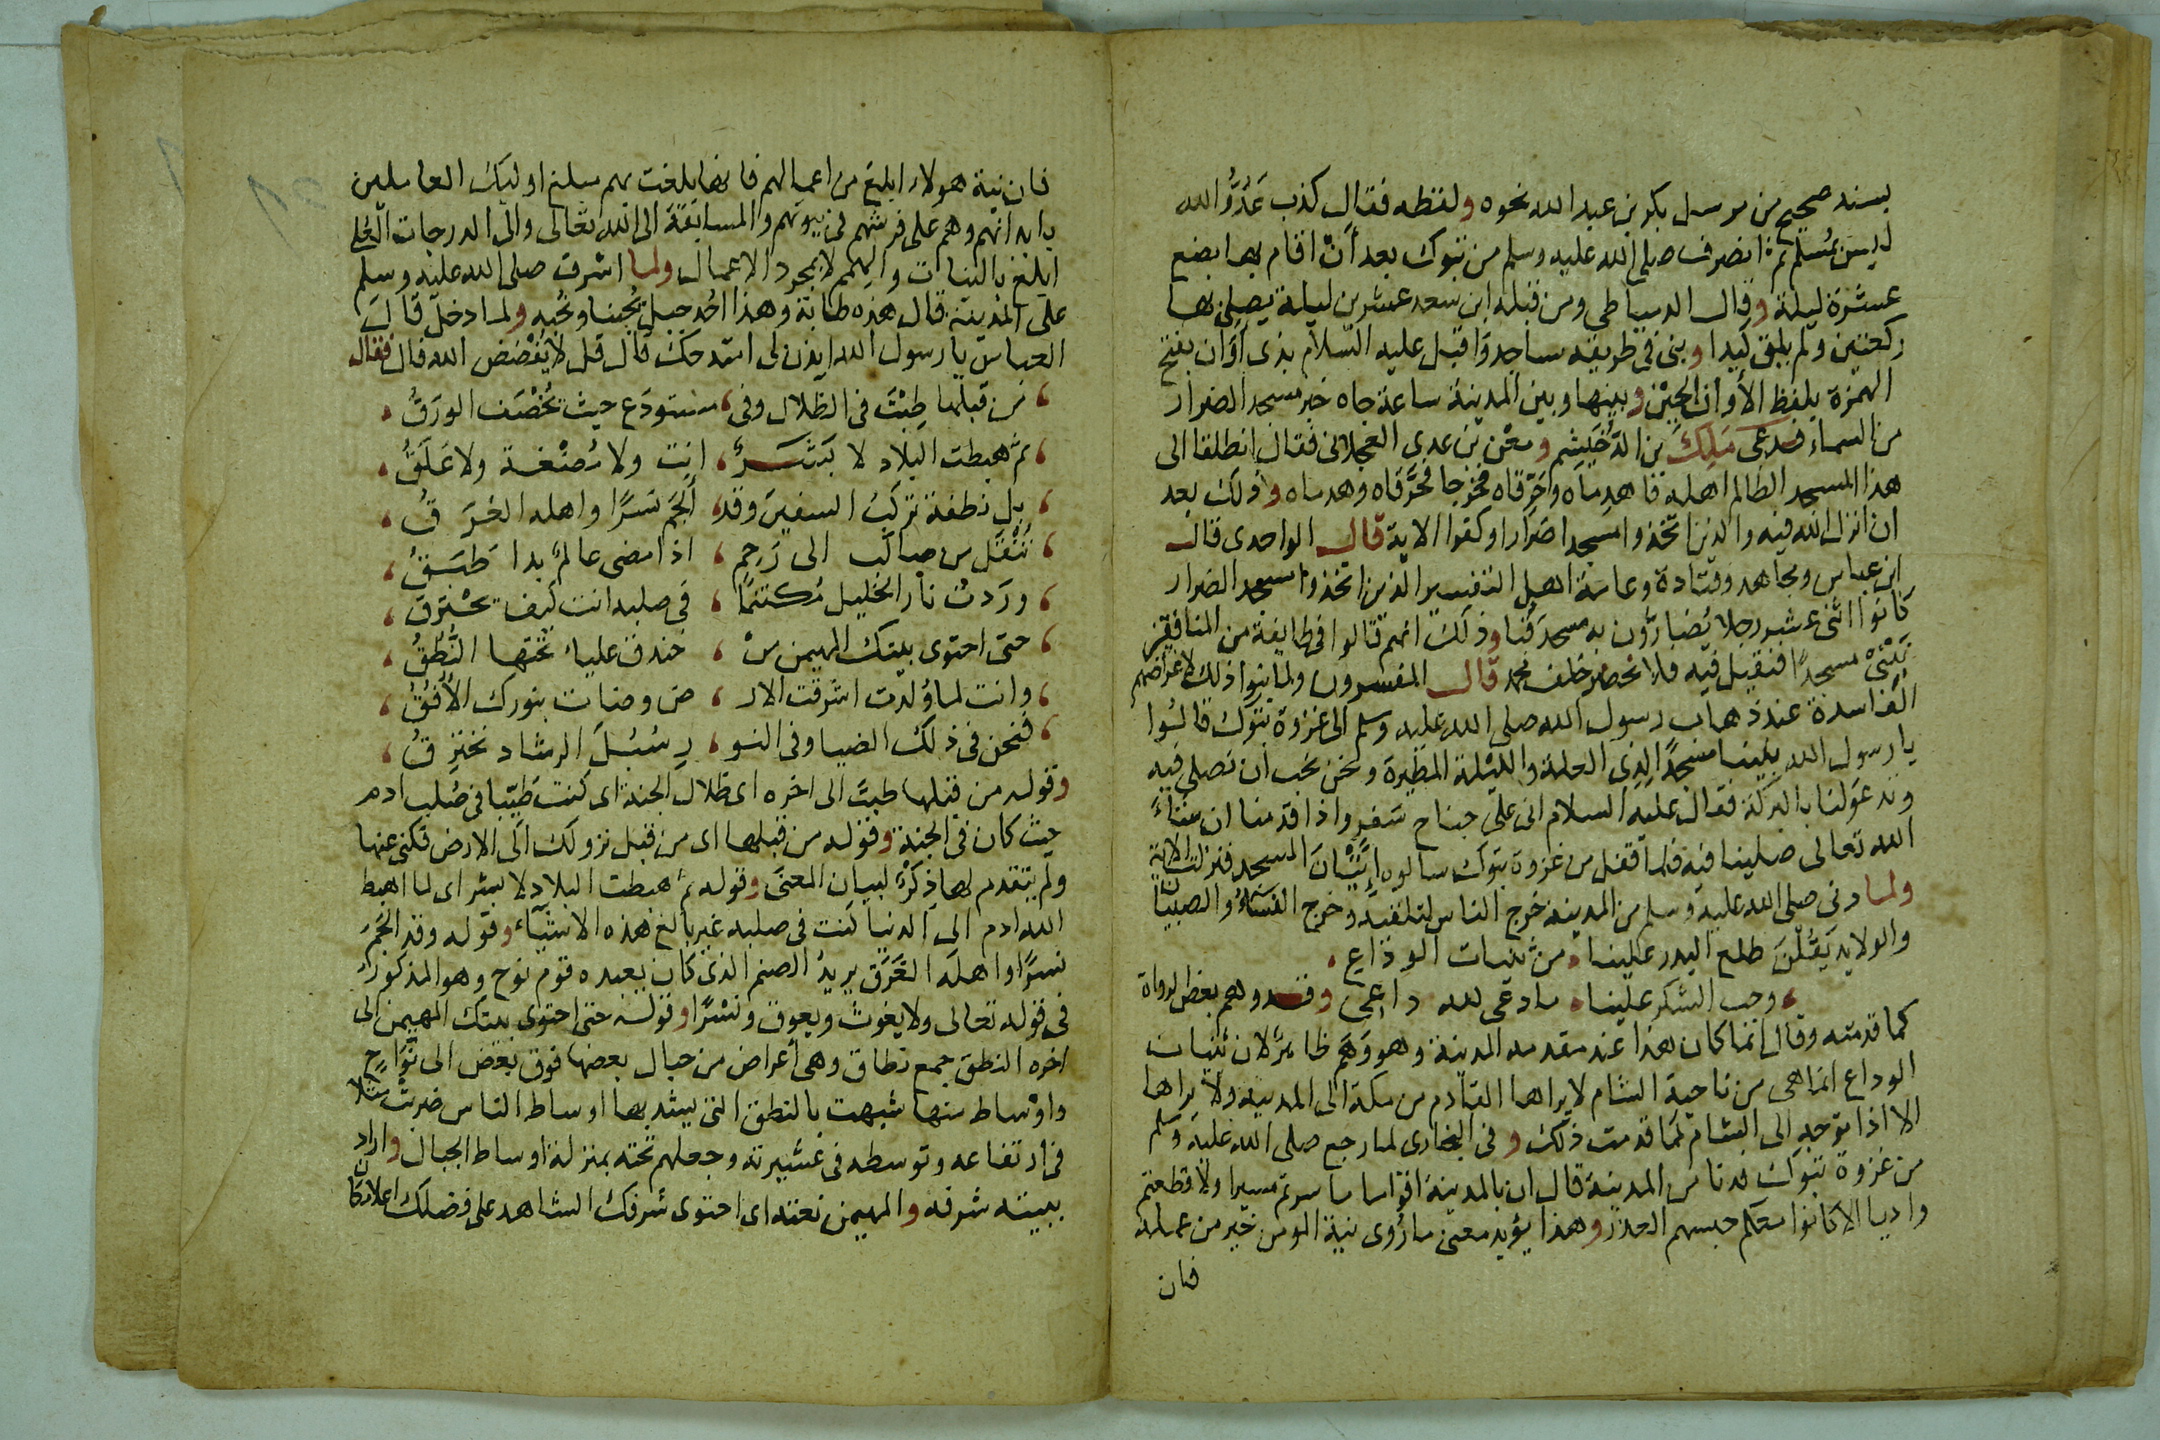 بسند صحيح من مرسل بكر بن عبد الله نحوه ولفظه فقال كذب عَدُوُّ الله
ليس بمُسْلم ثم انصرف صلى الله عليه وسلم من تبوك بعد أنْ اقام بها بضع
عشرة ليلة وقال الدمياطى ومن قبله ابن سعد عشرين ليلة يصلى بها
ركعتين ولم يلق كيدا وبنى في طريقه مساجد واقبل عليه السلام بذى أوان بفتح
الهمزة بلفظ الأوان الحين وبينها وبين المدينة ساعة جاه خبر مسجد الضرار
من السماء فدعى مَلِكَ بن الدُخَيشم ومعن بن عدى العجلانى فقال انطلقا الى
هذا المسجد الظالم اهله فاهدماه واحرقاه فخرجا فحرَّقاه وهدماه وذلك بعد
ان انزل الله فيه والذين اتخذوا مسجدا ضرارا وكفرا الاية قال الواحدى قال
ابن عباس ومجاهد وقتادة وعامة اهل التفسير الذين اتخذوا مسجد الضرار
كانوا اثنى عشر رجلا يُضارُّون به مسجد قبا وذلك انهم قالوا فى طايفة من المنافقين
نَبْنى مسجدًا فنقيل فيه فلا نحضر خلف محمد قال المفسرون ولما بنوا ذلك لاغراضهم
الفاسدة عند ذهاب رسول الله صلى الله عليه وسلم الى غزوة تبوك قالوا
يا رسول الله بنينا مسجدًا لذى العلة والليلة المطيرة ونحن نحب ان تصلى فيه
وتدعو لنا بالبركة فقال عليه السلام انى على جناح سَفَر واذا قدمنا ان شاءَ
الله تعالى صلينا فيه فلما قفل من غزوة تبوك سالوه اِتيَانَ المسجد فنزلت الاية
ولما دنى صلى الله عليه وسلم من المدينة خرج الناس لتلقيه وخرج النساءُ والصبيان
والولايد يَقُلْنَ طلع البدر علينا من ثنيات الوداع
وجب الشكر علينا ما دعى لله داعى وقد وهم بعض الرواة
كما قدمته وقال انما كان هذا عند مقدمه المدينة وهو وَهَم ظاهرٌ لان ثنيات
الوداع انما هى من ناحية الشام لا يراها القادم من مكة الى المدينة ولا يراها
الا اذا توجه الى الشام كما قدمت ذلك وفى البخارى لما رجع صلى الله عليه وسلم
من غزوة تبوك فدنا من المدينة قال ان بالمدينة اقواما ما سرتم مسيرا ولا قطعتم
واديا الا كانوا معكم حبسهم العذر وهذا يؤيد معنى ما رُوى نية المومن خير من عمله
فان
فان نية هولاء ابلغ من اعمالهم فانها بلغت بهم مبلغ اوليك العاملين
بابدانهم وهم على فرشهم فى بيوتهم والمسابقة الى الله تعالى والى الدرجات العُلى
ابلغ بالنيات والهمم لا بمجرد الاعمال ولما اشرف صلى الله عليه وسلم
على المدينة قال هذه طابة وهذا اُحد جبل يُحبنا ونُحبه ولما دخل قال
العباس يا رسول الله ايذن لى امتدحك قال قل لا يَفْضُض الله فاك فقال
من قبلها طِبْتَ فى الظلال وفى مستودَع حيث يُخْصَف الورَقُ
ثم هبطت البلاد لا بَشَرٌ انت ولا مُضْغة ولا عَلَقُ
بل نطفة تركبُ السفينَ وقد اَلجَم نَسرًا واهله الغَرَقُ
تُنْقَل من صالب الى رَحِمٍ اذا مضى عالمٌ بدا طَبَقُ
وردْتَ نارَ الخليل مُكتتمًا فى صلبه انت كيف يحْترقُ
حتى احتوى بيتك المهيمن مِنْ خندف علياءَ تحتها النُّطُقُ
وانت لما وُلدت اشرقت الار ض وضات بنورك الأُفُقُ
فنحن فى ذلك الضيا وفى النو رِ سُبُلَ الرشاد نخترقُ
وقوله من قبلها طبتَ الى اخره اى ظلال الجنة اى كنت طَيّبا فى صُلب ادم
حيث كان فى الجنة وقوله من قبلها اى من قبل نزولك الى الارض فكنى عنها
ولم يتقدم لها ذِكْرٌ لبيان المعنى وقوله ثم هبطت البلاد لا بشر اى لما اهبط
الله ادم الى الدنيا كنت فى صلبه غير بالغ هذه الاشيآء وقوله وقد الجَم
نسرًا واهله الغَرَق يريدُ الصنم الذى كان يعبده قوم نوح وهو المذكور
فى قوله تعالى ولا يغوث ويعوق ونسْرًا وقوله حتى احتوى بيتك المهيمن الى
اخره النطق جمع نطاق وهى أعراض من جبال بعضها فوق بعض الى نَوَاحٍ
واوْساط منها شبهت بالنطق التى يشد بها اوساط الناس ضربتْ مثلا
فى ارتفاعه وتوسطه فى عشيرته وجعلهم تحته بمنزلة اوساط الجبال واراد
ببيته شرفه والمهيمن نعته اى احتوى شرفك الشاهد على فضلك اعلا مكان